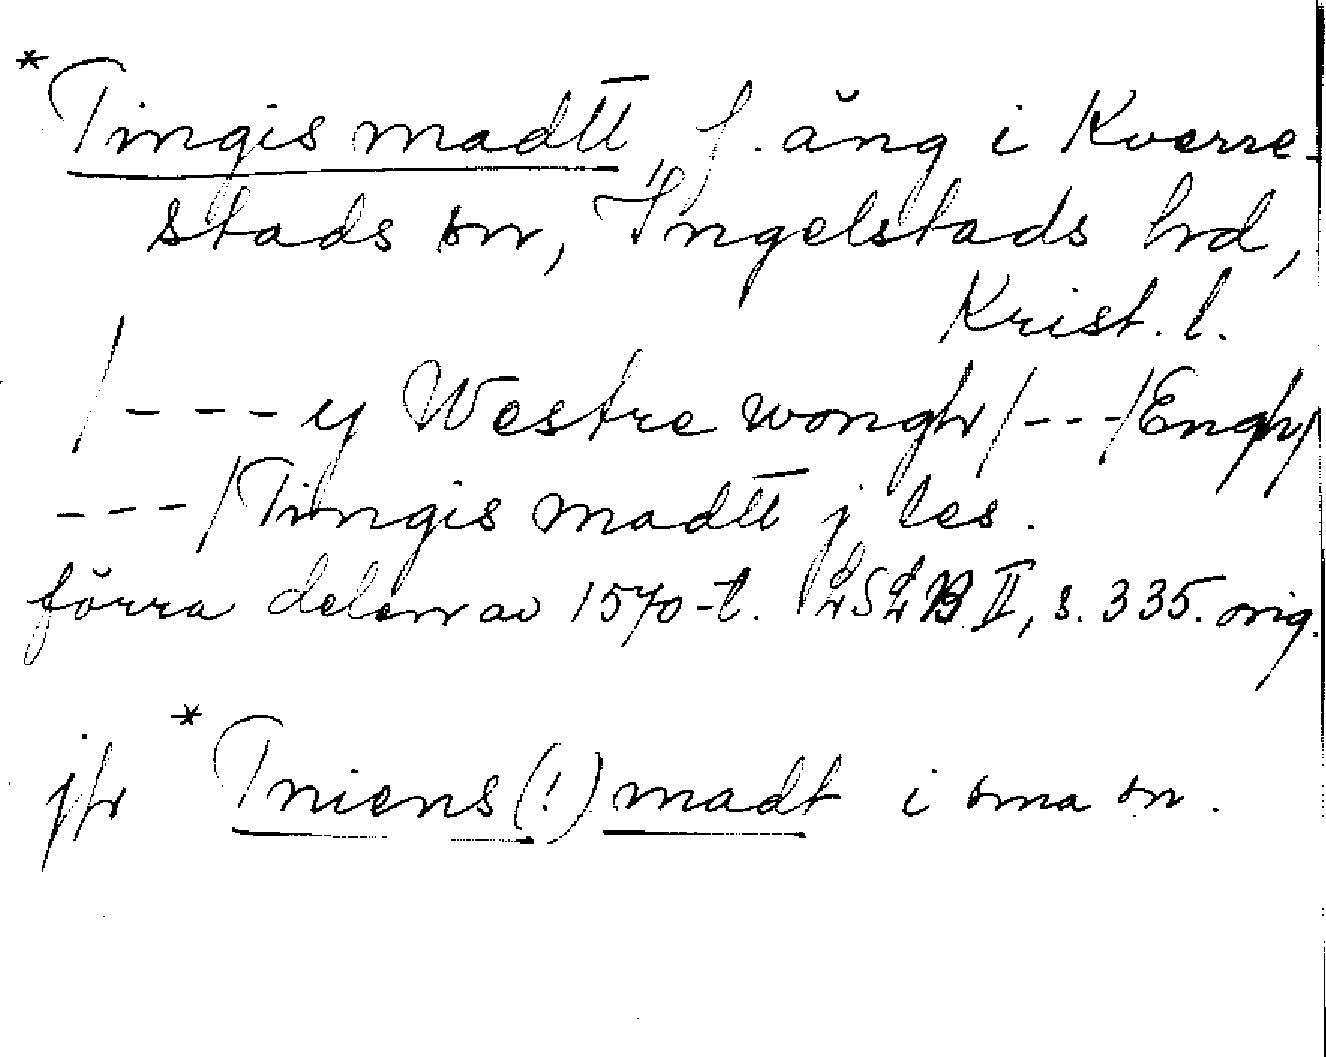 *Tingis madtt, f. äng i Kverre-
stads sn, Ingelstads hd,
Krist. l.
/---- y Westre wongh/---/Engh/
---/Tingis madtt j les.
förra delen av 1570-t. LSLB II, s. 335. orig.
jfr *Tniens(!)madt i sma sn.